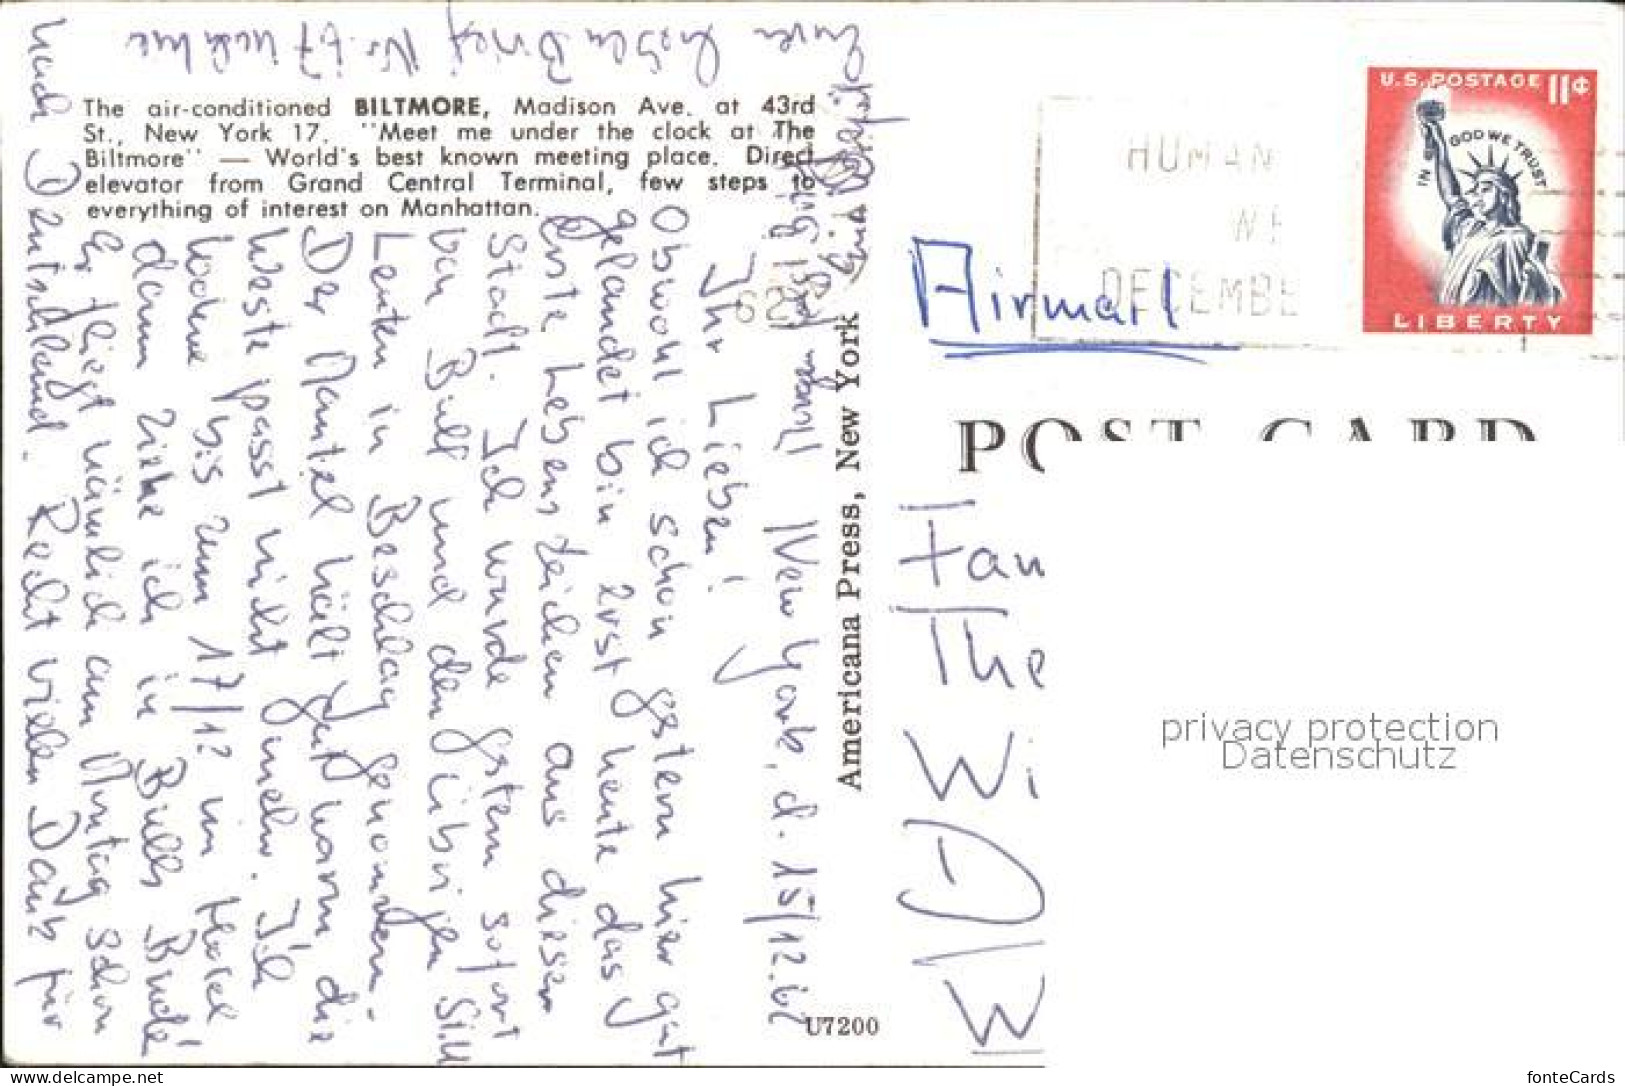 The air-conditioned BILTMORE, Madison Ave. at 43rd
St., New York 17. "Meet me under the clock at The
Biltmore" — World's best known meeting place. Direct
elevator from Grand Central Terminal, few steps to
everything of interest on Manhattan.
New York, d. 15/12.62
Ihr Lieben!
Obwohl ich schon gestern hier gut
gelandet bin, erst heute das
erste Lebenszeichen aus dieser
Stadt. Ich wurde gestern sofort
von Bill und den übrigen
Leuten in Beschlag genommen.
Der Mantel hält gut warm, die
Weste passt nicht mehr. Ich
wohne bis zum 17/12 im Hotel
dann ziehe ich in Bills Bude
Er fliegt nämlich am Montag schon
nach Deutschland. Recht vielen Dank für
Americana Press, New York
U7200
Airmail
U.S. POSTAGE 11¢
IN GOD WE TRUST
LIBERTY
HUMAN
WE
DECEMBE
POST CARD
Fam
The
Wi
privacy protection
Datenschutz
www.delcampe.net
fonteCards